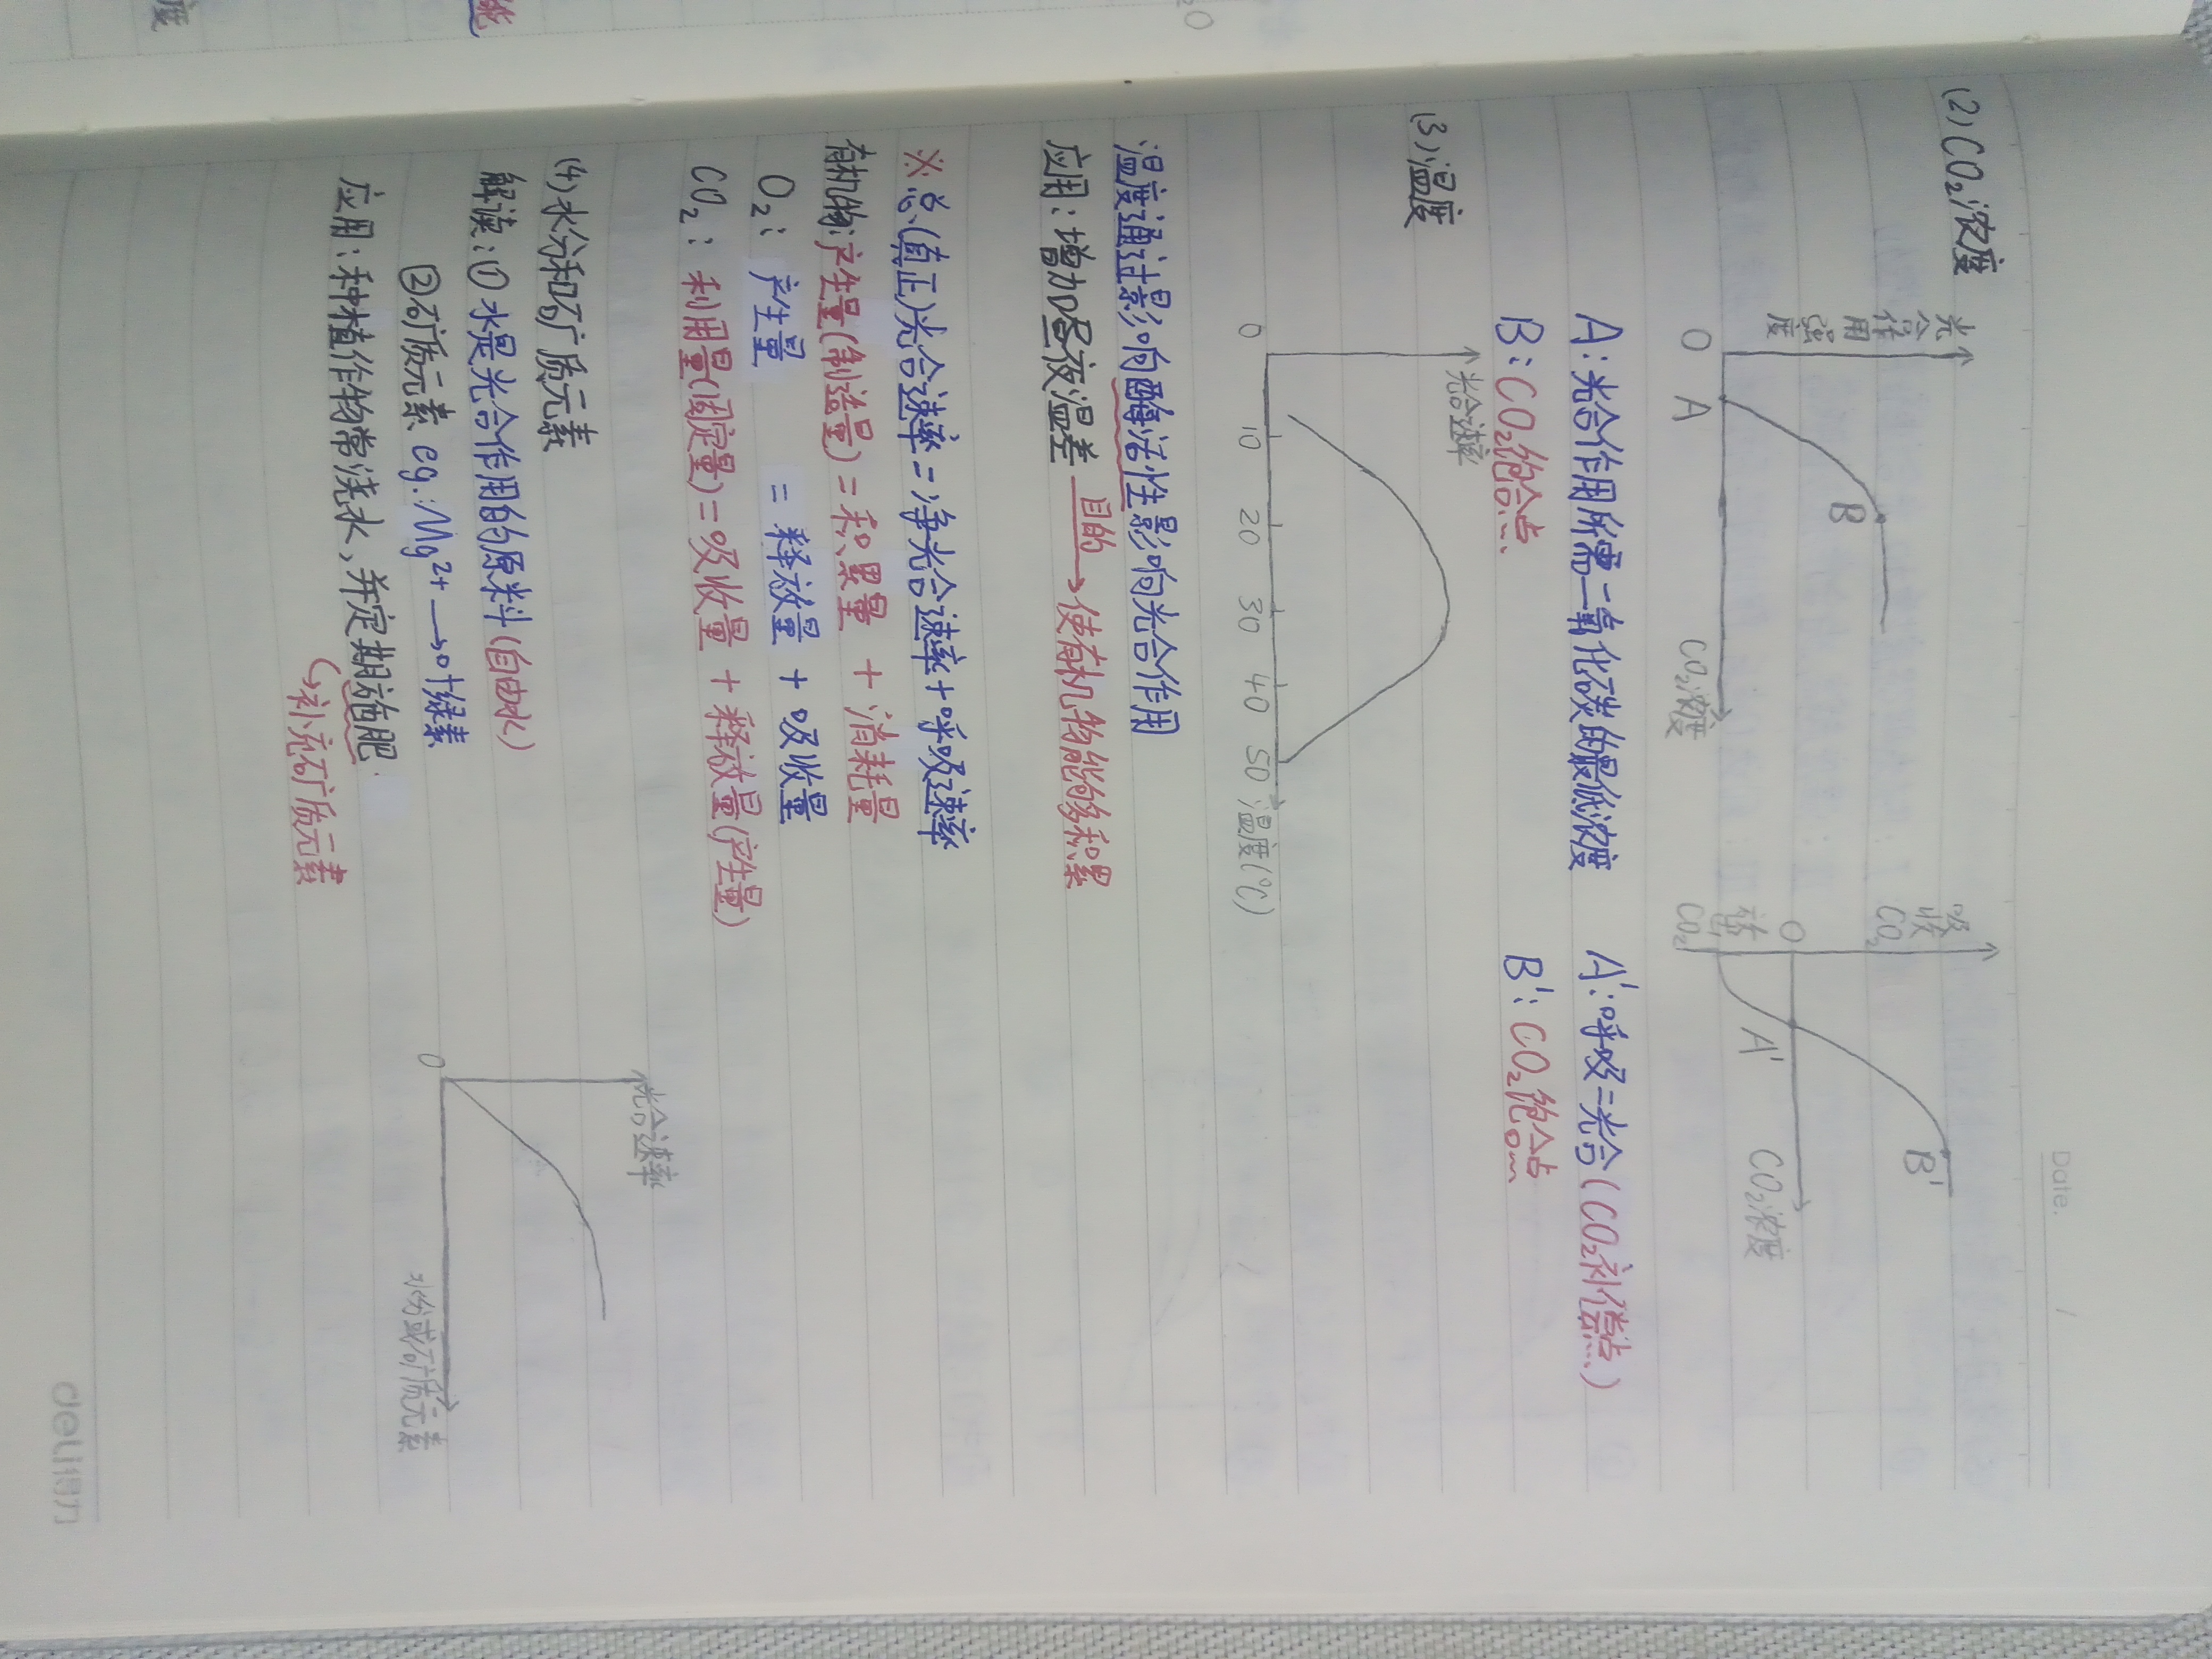 Date.      /
(2) CO₂浓度
光合作用强度
O
A
B
CO₂浓度
吸收CO₂
O
CO₂
A'
B'
CO₂浓度
A：光合作用所需二氧化碳的最低浓度
A'：呼吸=光合(CO₂补偿点)
B：CO₂饱合点
B'：CO₂饱合点
(3)温度
光合速率
0 10 20 30 40 50 温度(℃)
温度通过影响酶活性影响光合作用
应用：增加昼夜温差 目的→使有机物能够积累
※总(真正)光合速率=净光合速率+呼吸速率
有机物：产生量(制造量)=积累量 + 消耗量
O₂： 产生量 = 释放量 + 吸收量
CO₂：利用量(固定量)=吸收量 + 释放量(产生量)
(4)水分和矿质元素
解读：① 水是光合作用的原料(自由水)
②矿质元素 eg.Mg²⁺→叶绿素
应用：种植作物常浇水，并定期施肥.
↳补充矿质元素
光合速率
0
水份或矿质元素
deli得力
₂O
能
度